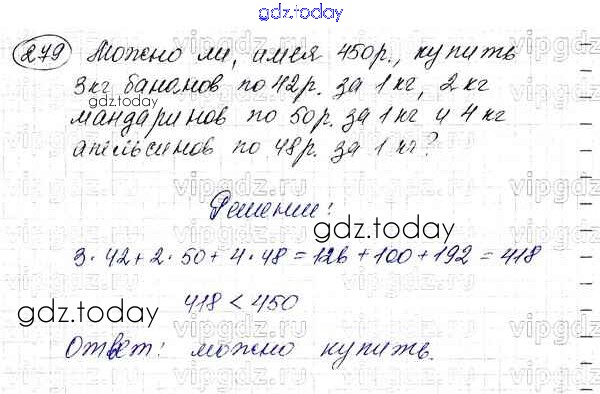 gdz.today
279 Можно ли, имея 450р., купить
3кг бананов по 42р. за 1 кг, 2 кг
gdz.today
мандаринов по 50р. за 1 кг и 4 кг
апельсинов по 48р. за 1 кг?
Решение:
gdz.today
3·42+2·50+4·48=126+100+192=418
gdz.today
418 < 450
Ответ: можно купить.